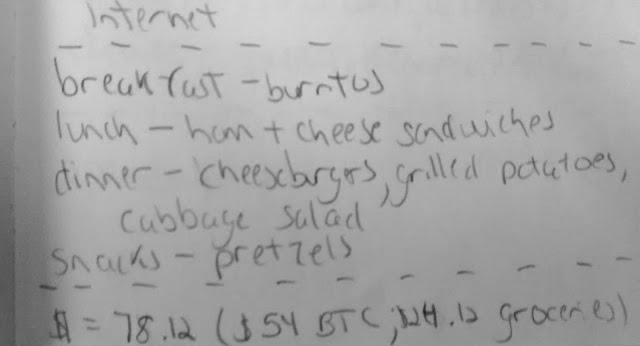 Internet
breakfast - burritos
lunch - ham + cheese sandwiches
dinner - cheeseburgers, grilled potatoes,
cabbage salad
snacks - pretzels
$ = 78.12 ($54 BTC; $24.12 groceries)